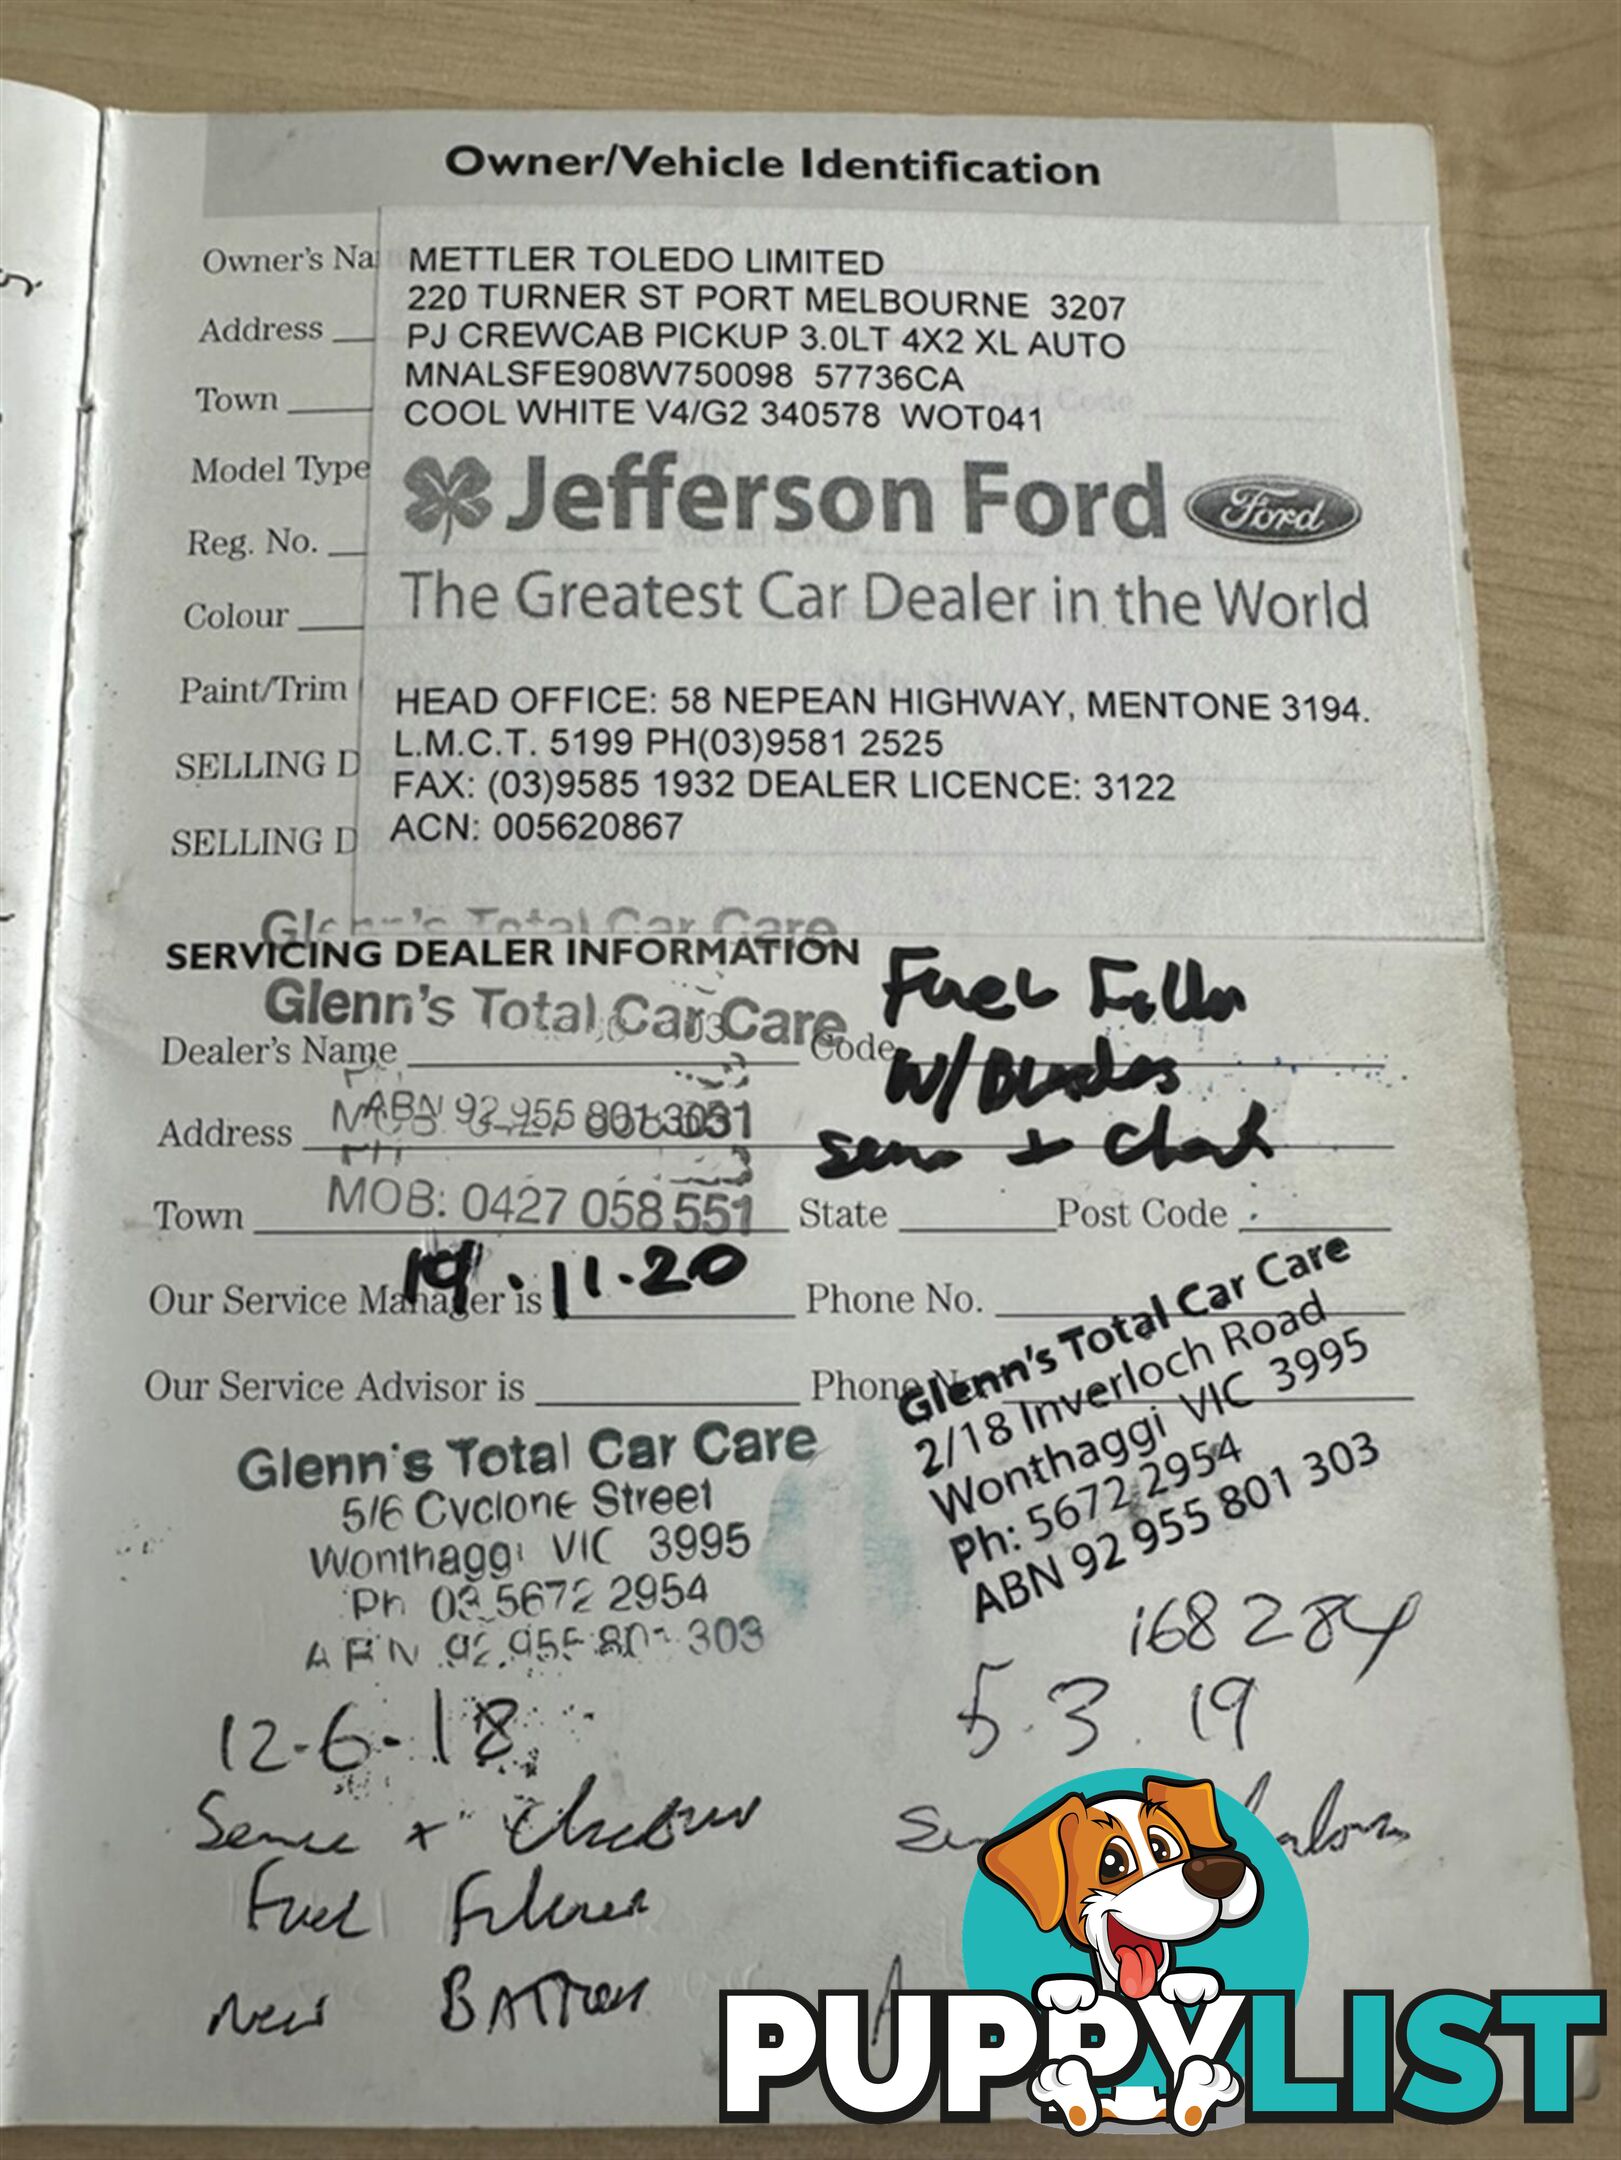 Owner/Vehicle Identification
Owner's Na METTLER TOLEDO LIMITED
220 TURNER ST PORT MELBOURNE 3207
Address PJ CREWCAB PICKUP 3.0LT 4X2 XL AUTO
MNALSFE908W750098 57736CA
Town COOL WHITE V4/G2 340578 WOT041
Model Type
Jefferson Ford Ford
Reg. No.
Colour The Greatest Car Dealer in the World
Paint/Trim HEAD OFFICE: 58 NEPEAN HIGHWAY, MENTONE 3194.
L.M.C.T. 5199 PH(03)9581 2525
SELLING D
FAX: (03)9585 1932 DEALER LICENCE: 3122
SELLING D ACN: 005620867
Glenn's Total Car Care
SERVICING DEALER INFORMATION
Fuel Filter
Glenn's Total Car Care
Dealer's Name Code
W/Blades
ABN 92 955 801 303
Address
MOB: 0427 058 551
Town State Post Code
19.11.20
Our Service Manager is Phone No.
Our Service Advisor is Phone No.
Glenn's Total Car Care
2/18 Inverloch Road
Wonthaggi VIC 3995
Ph: 5672 2954
ABN 92 955 801 303
168284
5.3.19
Glenn's Total Car Care
5/6 Cyclone Street
Wonthaggi VIC 3995
Ph 03 5672 2954
ABN 92 955 801 303
12-6-18
Service +
Fuel Filter
New Battery
PUPPYLIST